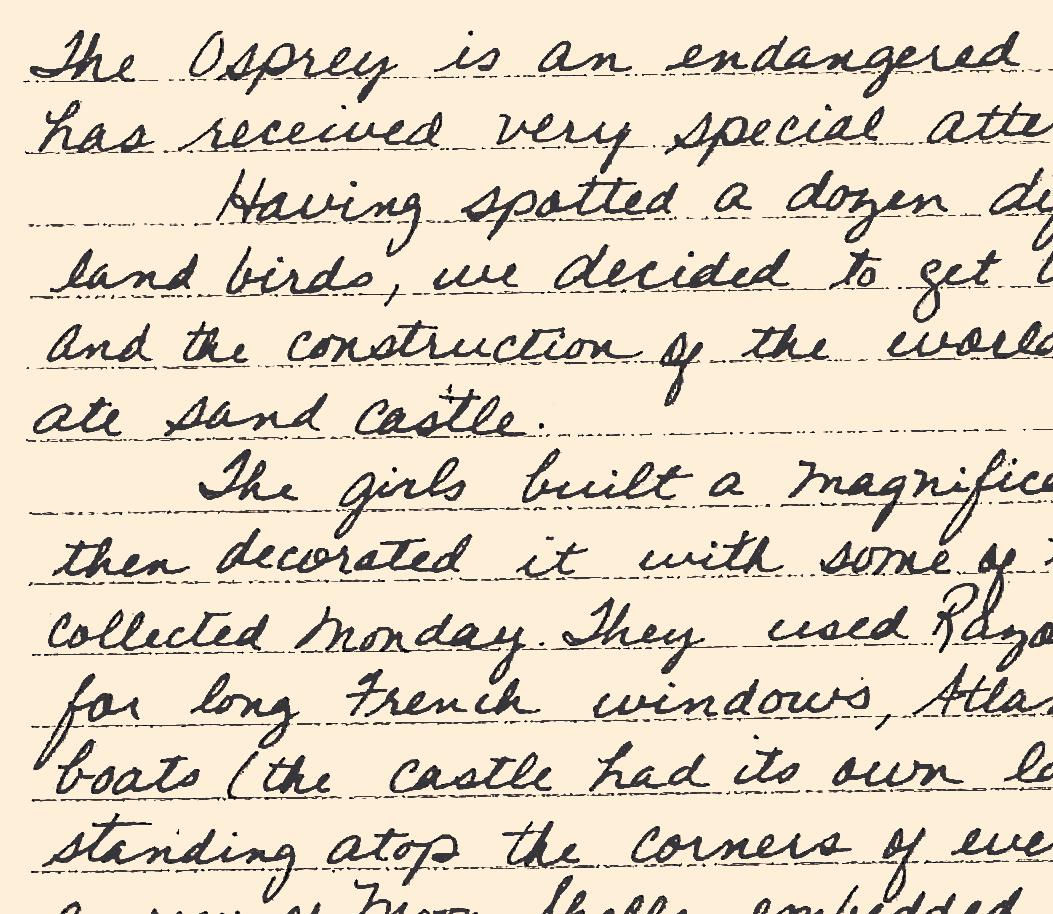 The Osprey is an endangered
has received very special atte
Having spotted a dozen
land birds, we decided to get
and the construction of the world
ate sand castle.
The girls built a magnifice
then decorated it with some of
collected Monday. They used Razo
for long French windows, Atlan
boats (the castle had its own
standing atop the corners of eve
Moon Shells embedded